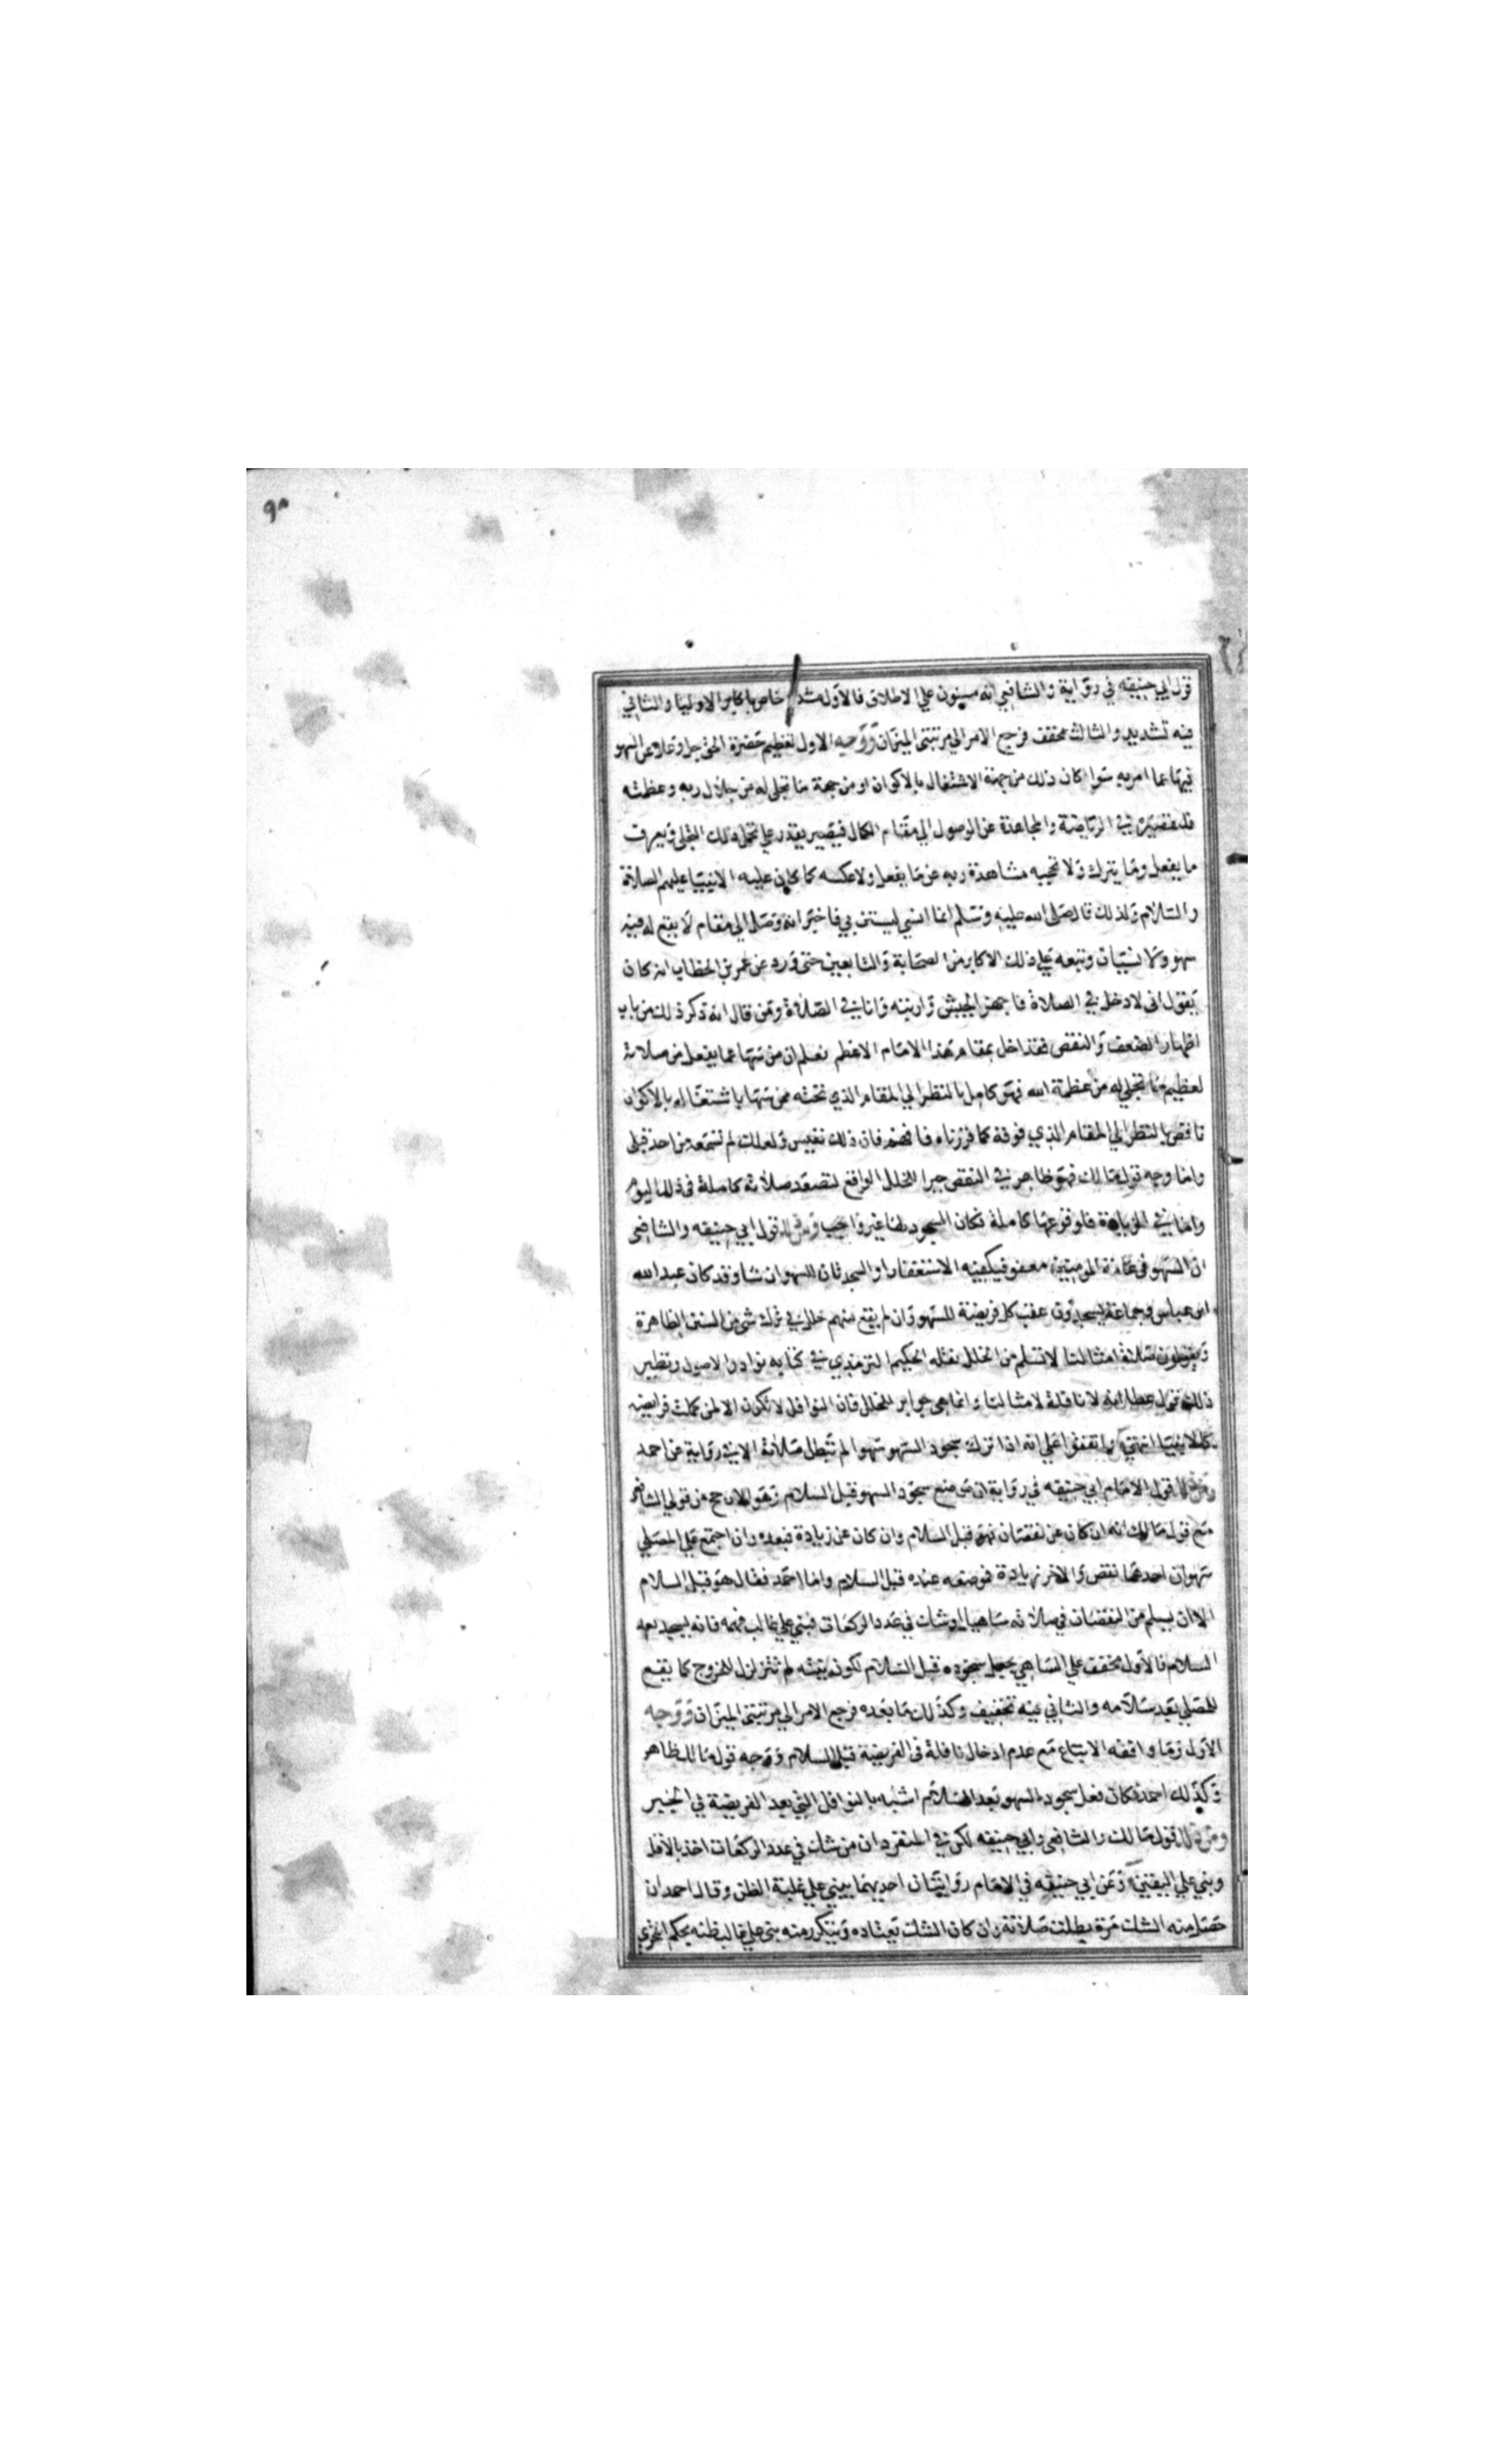 ٩٨
قول ابي حنيفه في رواية والشافعي انه مسنون علي الاطلاق فالاول مشدد خاص باكابر الاوليا والثاني
فيه تشديد والثالث مخفف فرجع الامر الي مرتبتي الميزان ووجه الاول تعظيم حضرة الحق جل وعلا عن السهو
فيها عما امر به سوا كان ذلك من جهة الاشتغال بالاكوان او من جهة ما تجلي له من جلال ربه وعظمته
فلتقصيره في الرياضة والمجاهدة عن الوصول الي مقام الكمال فيصير يقدر علي تحمل ذلك التجلي ويعرف
ما يفعل وما يترك ولا تحجبه مشاهدة ربه عن ما يفعل ولا عكسه كما كان عليه الانبيا عليهم الصلاة
والسلام ولذلك قال صلي الله عليه وسلم انما انسي ليستن بي فاخبر انه وصل الي مقام لا يقع له فيه
سهو ولا نسيان وتبعه علي ذلك الاكابر من الصحابة والتابعين حتي ورد عن عمر بن الخطاب انه كان
يقول اني لادخل في الصلاة فاجهز الجيش وارتبه وانا في الصلاة ومن قال انه ذكر ذلك من باب
اظهار الضعف والنقص فقد اخل بمقام هذا الامام الاعظم فعلم ان من سها عما يفعل من صلاته
لعظيم ما تجلي له من عظمة الله فهو كامل بالنظر الي المقام الذي تحته ممن سها باشتغاله بالاكوان
ناقص بالنظر الي المقام الذي فوقه كما قررناه فافهم فان ذلك نفيس ولعلك لم تسمعه من احد قبلي
واما وجه قول مالك فهو ظاهر في النقص جبرا للخلل الواقع لتصعد صلاته كاملة في ذلك اليوم
واما في الزيادة فلوقوعها كاملة فكان السجود لها غير واجب ووجه قول ابي حنيفه والشافعي
ان السهو في عادة المومنين معفو فيكفيه الاستغفار او السجدتان للسهو ان شا وقد كان عبد الله
ابن عباس وجماعة يسجدون عقب كل فريضة للسهو وان لم يقع منهم خلل في ترك شي من السنن الظاهرة
ويقولون صلاة امثالنا لا تسلم من الخلل نقله الحكيم الترمذي في كتابه نوادر الاصول ونظير
ذلك قول عطا انه لا نافلة لامثالنا وانما هي جوابر للخلل فان النوافل لا تكون الا لمن كملت فرايضه
كالانبيا انتهي واتفقوا علي انه اذا ترك سجود السهو سهوا لم تبطل صلاته الا في رواية عن احمد
ومن ذلك قول الامام ابي حنيفه في رواية ان موضع سجود السهو قبل السلام وهو الارجح من قولي الشافعي
مع قول مالك انه ان كان عن نقصان فهو قبل السلام وان كان عن زيادة فبعده وان اجتمع علي المصلي
سهوان احدهما نقص والاخر زيادة فوضعه عنده قبل السلام واما احمد فقال هو قبل السلام
الا ان يسلم من النقصان في صلاته ساهيا او شك في عدد الركعات فبني علي غالب فهمه فانه يسجد بعد
السلام فالاول مخفف علي الساهي بجعل سجوده قبل السلام لكون بنيته لم تتزلزل للخروج كما يقع
للمصلي بعد سلامه والثاني فيه تخفيف وكذلك ما بعده فرجع الامر الي مرتبتي الميزان ووجه
الاول وما وافقه الاتباع مع عدم ادخال نافلة في الفريضة قبل السلام ووجه قول مالك ظاهر
وكذلك احمد فكان فعل سجود السهو بعد السلام اشبه بالنوافل التي بعد الفريضة في الجبر
ومن ذلك قول مالك والشافعي وابي حنيفه لكن في المنفرد ان من شك في عدد الركعات اخذ بالاقل
وبني علي اليقين وعن ابي حنيفه في الامام روايتان احديهما يبني علي غلبة الظن وقال احمد ان
حصل منه الشك مرة بطلت صلاته وان كان الشك يعتاده ويتكرر منه بني علي غالب ظنه بحكم التحري